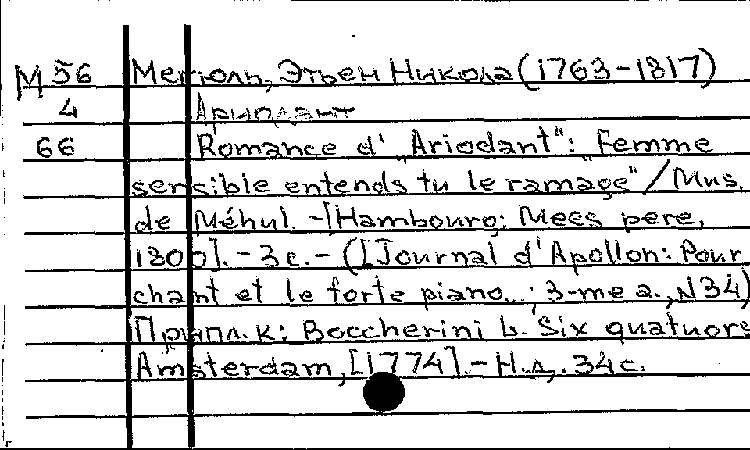 М 56 Мегюль, Этьен Никола (1763-1817)
4 Ариодант
66 Romance d' „Ariodant": „Femme
sensible entends tu le ramage" / Mus.
de Méhul. - [Hambourg: Mees pere,
1800]. - 3 с. - ([Journal d'Apollon: Pour
chant et le forte piano...; 3-me a., N34)
Припл. к: Boccherini L. Six quatuors
Amsterdam, [1774]. - Н.д. 34 с.